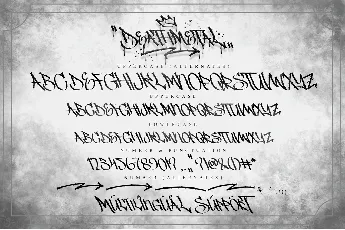 "DEATHMETAL"
UPPERCASE (ALTERNATES)
ABCDEFGHIJKLMNOPQRSTUVWXYZ
UPPERCASE
ABCDEFGHIJKLMNOPQRSTUVWXYZ
LOWERCASE
ABCDEFGHIJKLMNOPQRSTUVWXYZ
NUMBER & PUNCTUATION
MULTILINGUAL SUPPORT